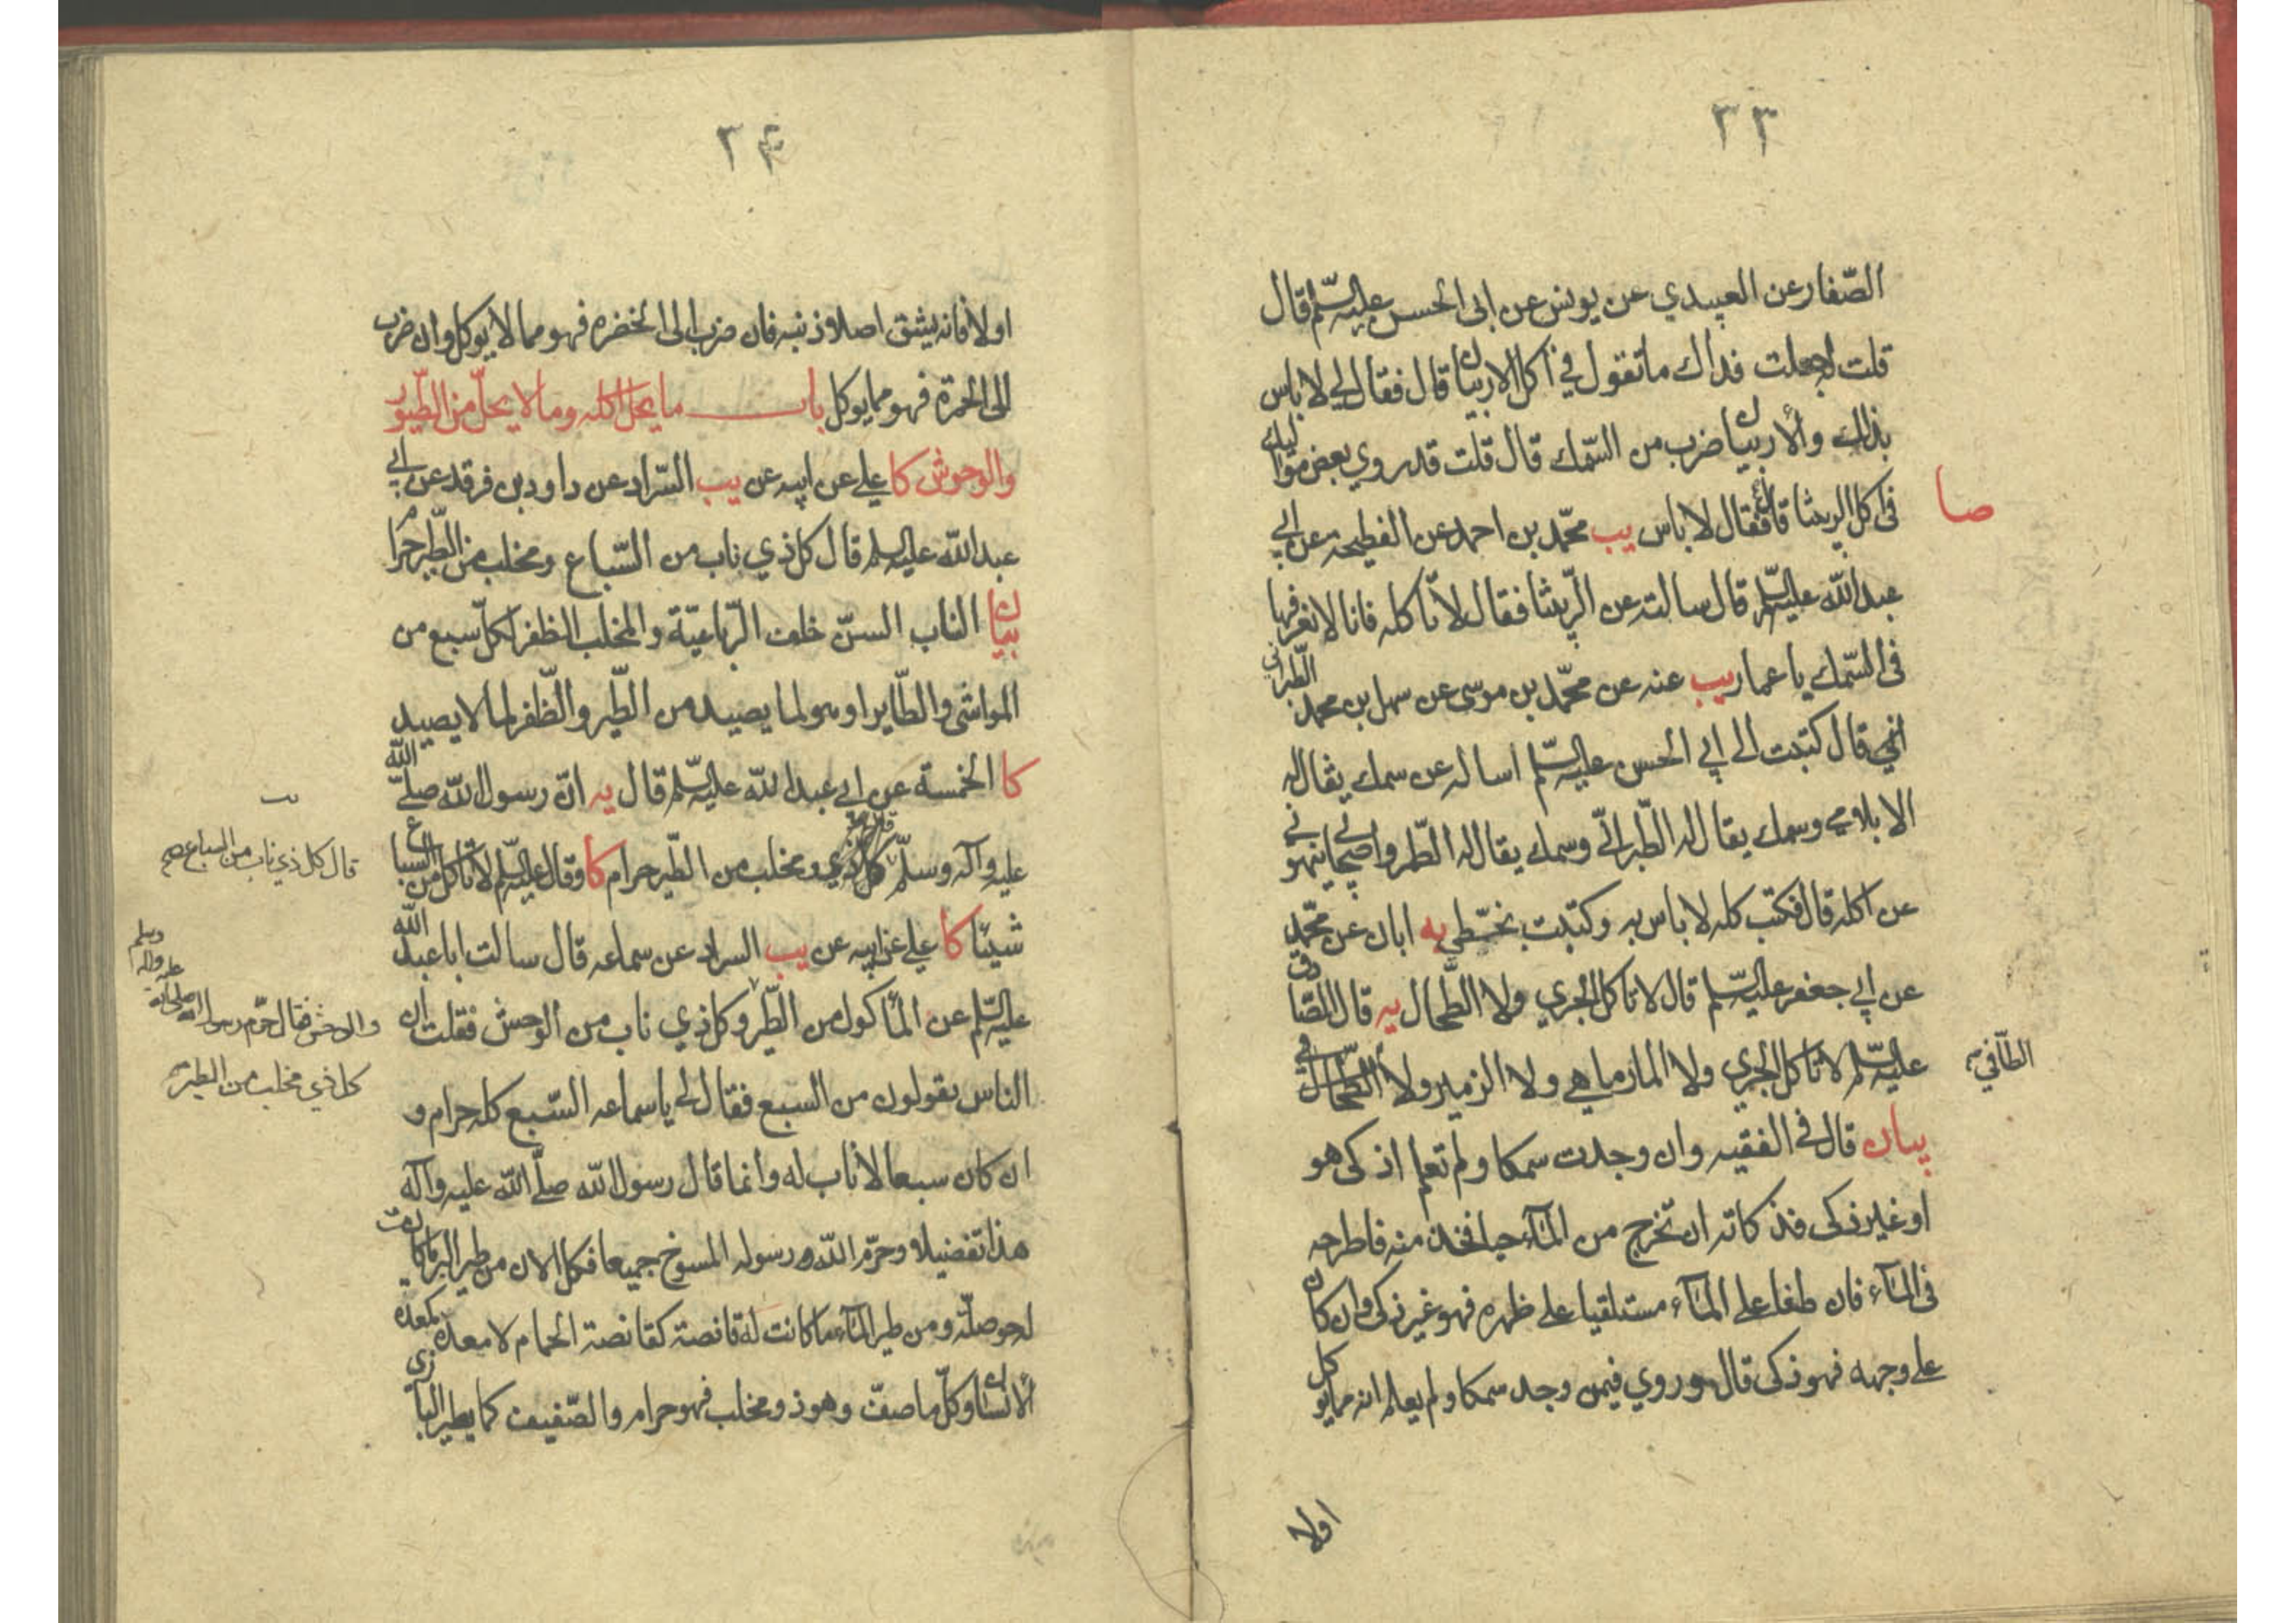 ٣٣
الصّفار عن العبيدي عن يونس عن ابى الحسن عليه السّلم قال
قلت له جعلت فداك ما تقول في اكل الاربيان قال فقال لي لا باس
بذلك والاربيان ضرب من السّمك قال قلت قد روي بعض مواليك
فى اكل الربيثا قال فقال لا باس يب محمّد بن احمد عن الفطحية عن ابي
صا
عبد الله عليه السّلم قال سالته عن الرّبيثا فقال لا تاكله فانا لا نعرفها
فى السّمك يا عمار يب عنه عن محمّد بن موسى عن سهل بن محمد الطبرانى
قال كتبت الى ابي الحسن عليه السّلم اساله عن سمك يقال له
الابلامي وسمك يقال له الطّبراني وسمك يقال له الطّمر واصحابي ينهوني
عن اكله قال فكتب كله لا باس به وكتبت بخطي يه ابان عن محمّد
عن ابي جعفر عليه السّلم قال لا تاكل الجري ولا الطّحال يه قال الصّادق
عليه السّلم لا تاكل الجري ولا المارماهي ولا الزمير ولا الطّافي
الطّافي
بيان قال فى الفقيه وان وجدت سمكا ولم تعلم اذكى هو
او غير ذكى فذكاته ان تخرج من المآء حيا فخذ منه فاطرحه
فى المآء فان طفا على المآء مستلقيا على ظهره فهو غير ذكى وان كان
على وجهه فهو ذكى قال وروي فيمن وجد سمكا ولم يعلم انه مما يوكل
اولا
٣٤
او لا فانه يشق اصل ذنبه فان ضرب الى الخضره فهو مما لا يوكل وان ضرب
الى الحمرة فهو مما يوكل باب ما يحل اكله وما لا يحلّ من الطّيور
والوحوش كا علي عن ابيه عن يب السّراد عن داود بن فرقد عن ابي
عبد الله عليه السلم قال كل ذي ناب من السّباع ومخلب من الطّير حرام
بيان الناب السنّ خلف الرّباعيّة والمخلب الظفر لكلّ سبع من
المواشى والطّاير او هو لما يصيد من الطّير والظّفر لما لا يصيد
كا الخمسة عن ابي عبد الله عليه السّلم قال يه انّ رسول الله صلّى الله
عليه وآله وسلّم كل ذي ومخلب من الطّير حرام كا وقال عليه السّلم لا تاكل من السباع
قال كل ذي ناب من السباع صح
شيئا كا علي عن ابيه عن يب السراد عن سماعه قال سالت ابا عبد الله
عليه السّلم عن المأكول من الطّير وكل ذي ناب من الوحش فقلت ان
والوحش فقال حرّم رسول الله صلى الله عليه وآله وسلم
كل ذي مخلب من الطير
الناس يقولون من السبع فقال لي يا سماعه السّبع كله حرام و
ان كان سبعا لا ناب له وانما قال رسول الله صلّى الله عليه وآله
هذا تفضيلا وحرّم الله ورسوله المسوخ جميعا فكل الان من طير البر ما كانت
له حوصلة ومن طير المآء ما كانت له قانصة كقانصة الحمام لا معدة كمعدة
الانسان وكلّ ما صفّ وهو ذو مخلب فهو حرام والصّفيف كما يطير البازي